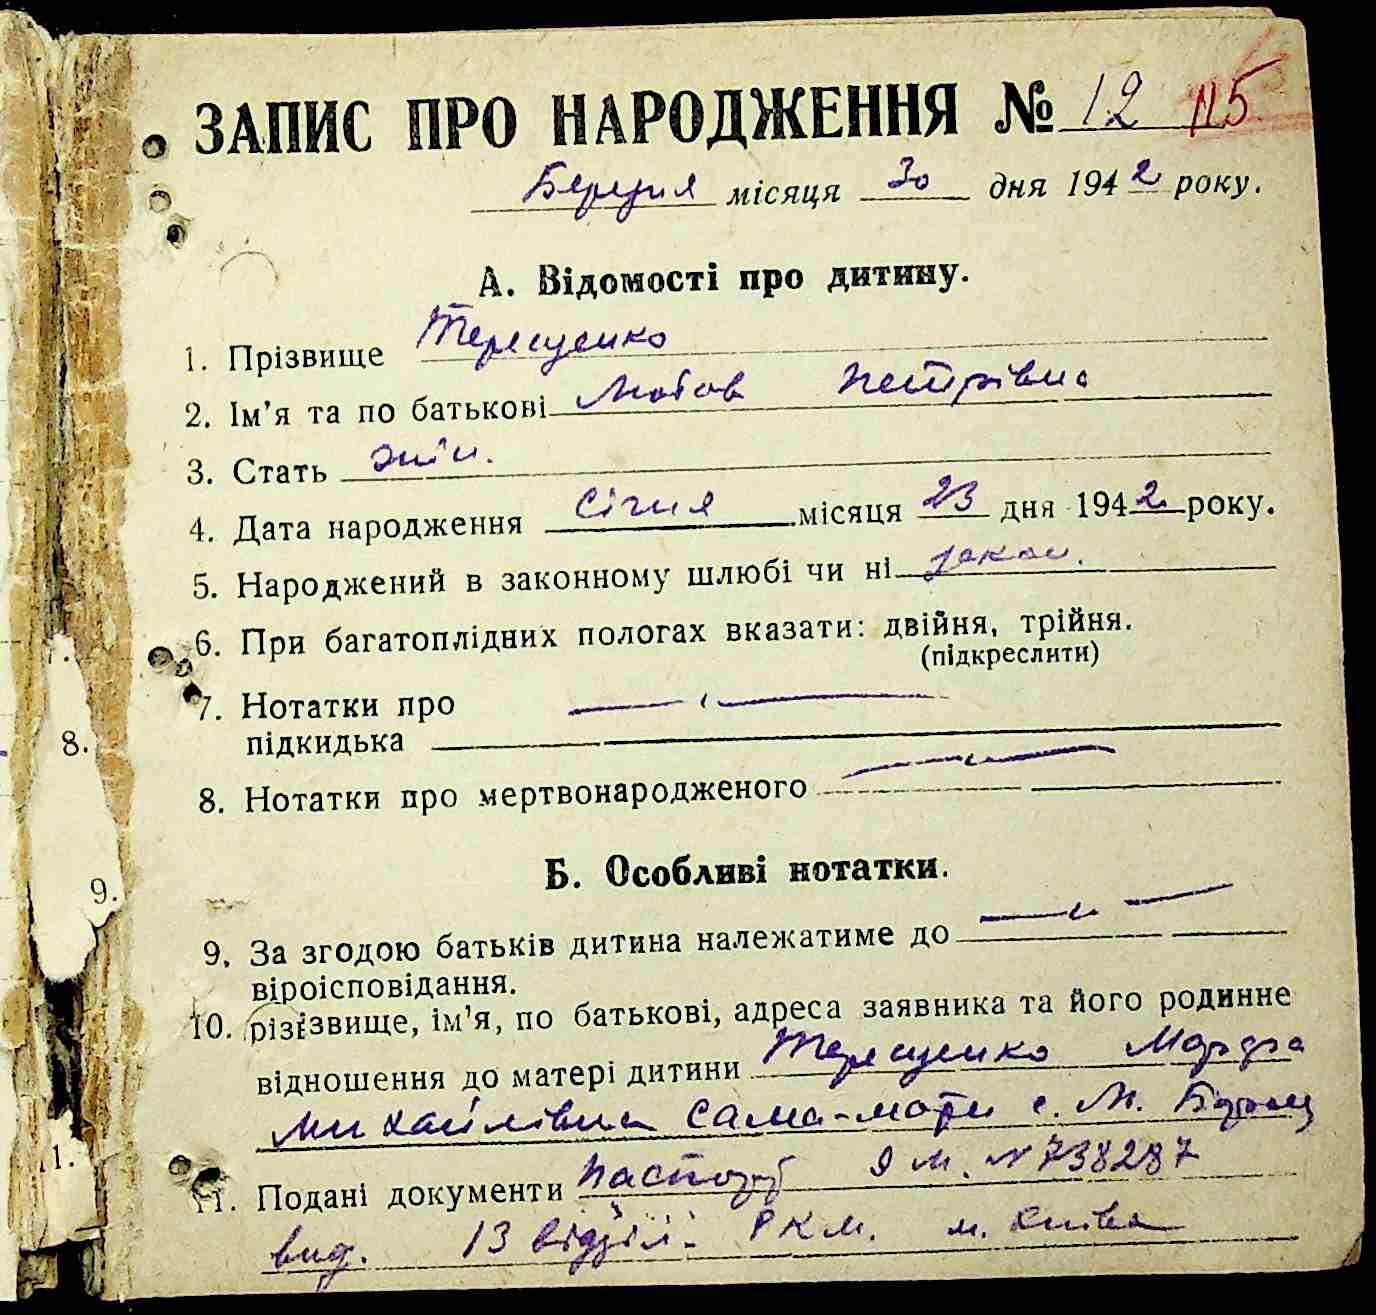 ЗАПИС ПРО НАРОДЖЕННЯ № 12 115
Березня місяця 30 дня 1942 року.
А. Відомості про дитину.
1. Прізвище Терещенко
2. Ім'я та по батькові Любов Петрівна
3. Стать жін.
4. Дата народження Січня місяця 23 дня 1942 року.
5. Народжений в законному шлюбі чи ні закон.
6. При багатоплідних пологах вказати: двійня, трійня.
(підкреслити)
7. Нотатки про
підкидька
8. Нотатки про мертвонародженого
8.
Б. Особливі нотатки.
9.
9. За згодою батьків дитина належатиме до
віроісповідання.
10. різізвище, ім'я, по батькові, адреса заявника та його родинне
відношення до матері дитини Терещенко Марфа
Михайлівна сама-мати с. М.
11. Подані документи паспорт ЯМ. N 738287
вид. 13 відділ. РКМ. м. Києва